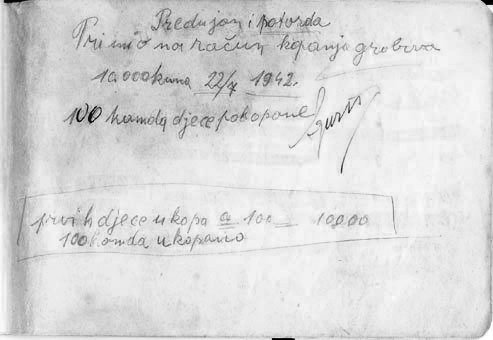 Predujam i potvrda
Primio na račun kopanja grobova
10.000 kuna 22/X 1942.
100 komda djece pokopane
prvih djece ukopa a 100 10000
100 komda ukopano